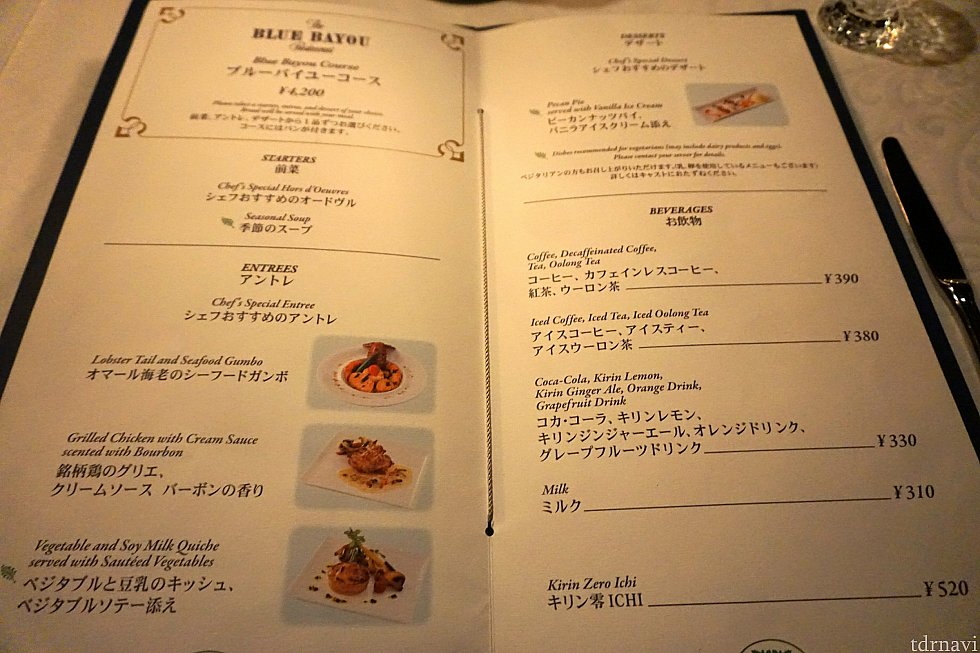 The
BLUE BAYOU
Restaurant
Blue Bayou Course
ブルーバイユーコース
¥4,200
Please select a starter, entree, and dessert of your choice.
Bread will be served with your meal.
前菜、アントレ、デザートから1品ずつお選びください。
コースにはパンが付きます。
STARTERS
前菜
Chef's Special Hors d'Oeuvres
シェフおすすめのオードヴル
Seasonal Soup
季節のスープ
ENTREES
アントレ
Chef's Special Entree
シェフおすすめのアントレ
Lobster Tail and Seafood Gumbo
オマール海老のシーフードガンボ
Grilled Chicken with Cream Sauce
scented with Bourbon
銘柄鶏のグリエ、
クリームソース バーボンの香り
Vegetable and Soy Milk Quiche
served with Sautéed Vegetables
ベジタブルと豆乳のキッシュ、
ベジタブルソテー添え
DESSERTS
デザート
Chef's Special Dessert
シェフおすすめのデザート
Pecan Pie
served with Vanilla Ice Cream
ピーカンナッツパイ、
バニラアイスクリーム添え
Dishes recommended for vegetarians (may include dairy products and eggs).
Please contact your server for details.
ベジタリアンの方もお召し上がりいただけます。(乳、卵を使用しているメニューもございます)
詳しくはキャストにおたずねください。
BEVERAGES
お飲物
Coffee, Decaffeinated Coffee,
Tea, Oolong Tea
コーヒー、カフェインレスコーヒー、
紅茶、ウーロン茶 ¥390
Iced Coffee, Iced Tea, Iced Oolong Tea
アイスコーヒー、アイスティー、
アイスウーロン茶 ¥380
Coca-Cola, Kirin Lemon,
Kirin Ginger Ale, Orange Drink,
Grapefruit Drink
コカ・コーラ、キリンレモン、
キリンジンジャーエール、オレンジドリンク、
グレープフルーツドリンク ¥330
Milk
ミルク ¥310
Kirin Zero Ichi
キリン零ICHI ¥520
tdrnavi